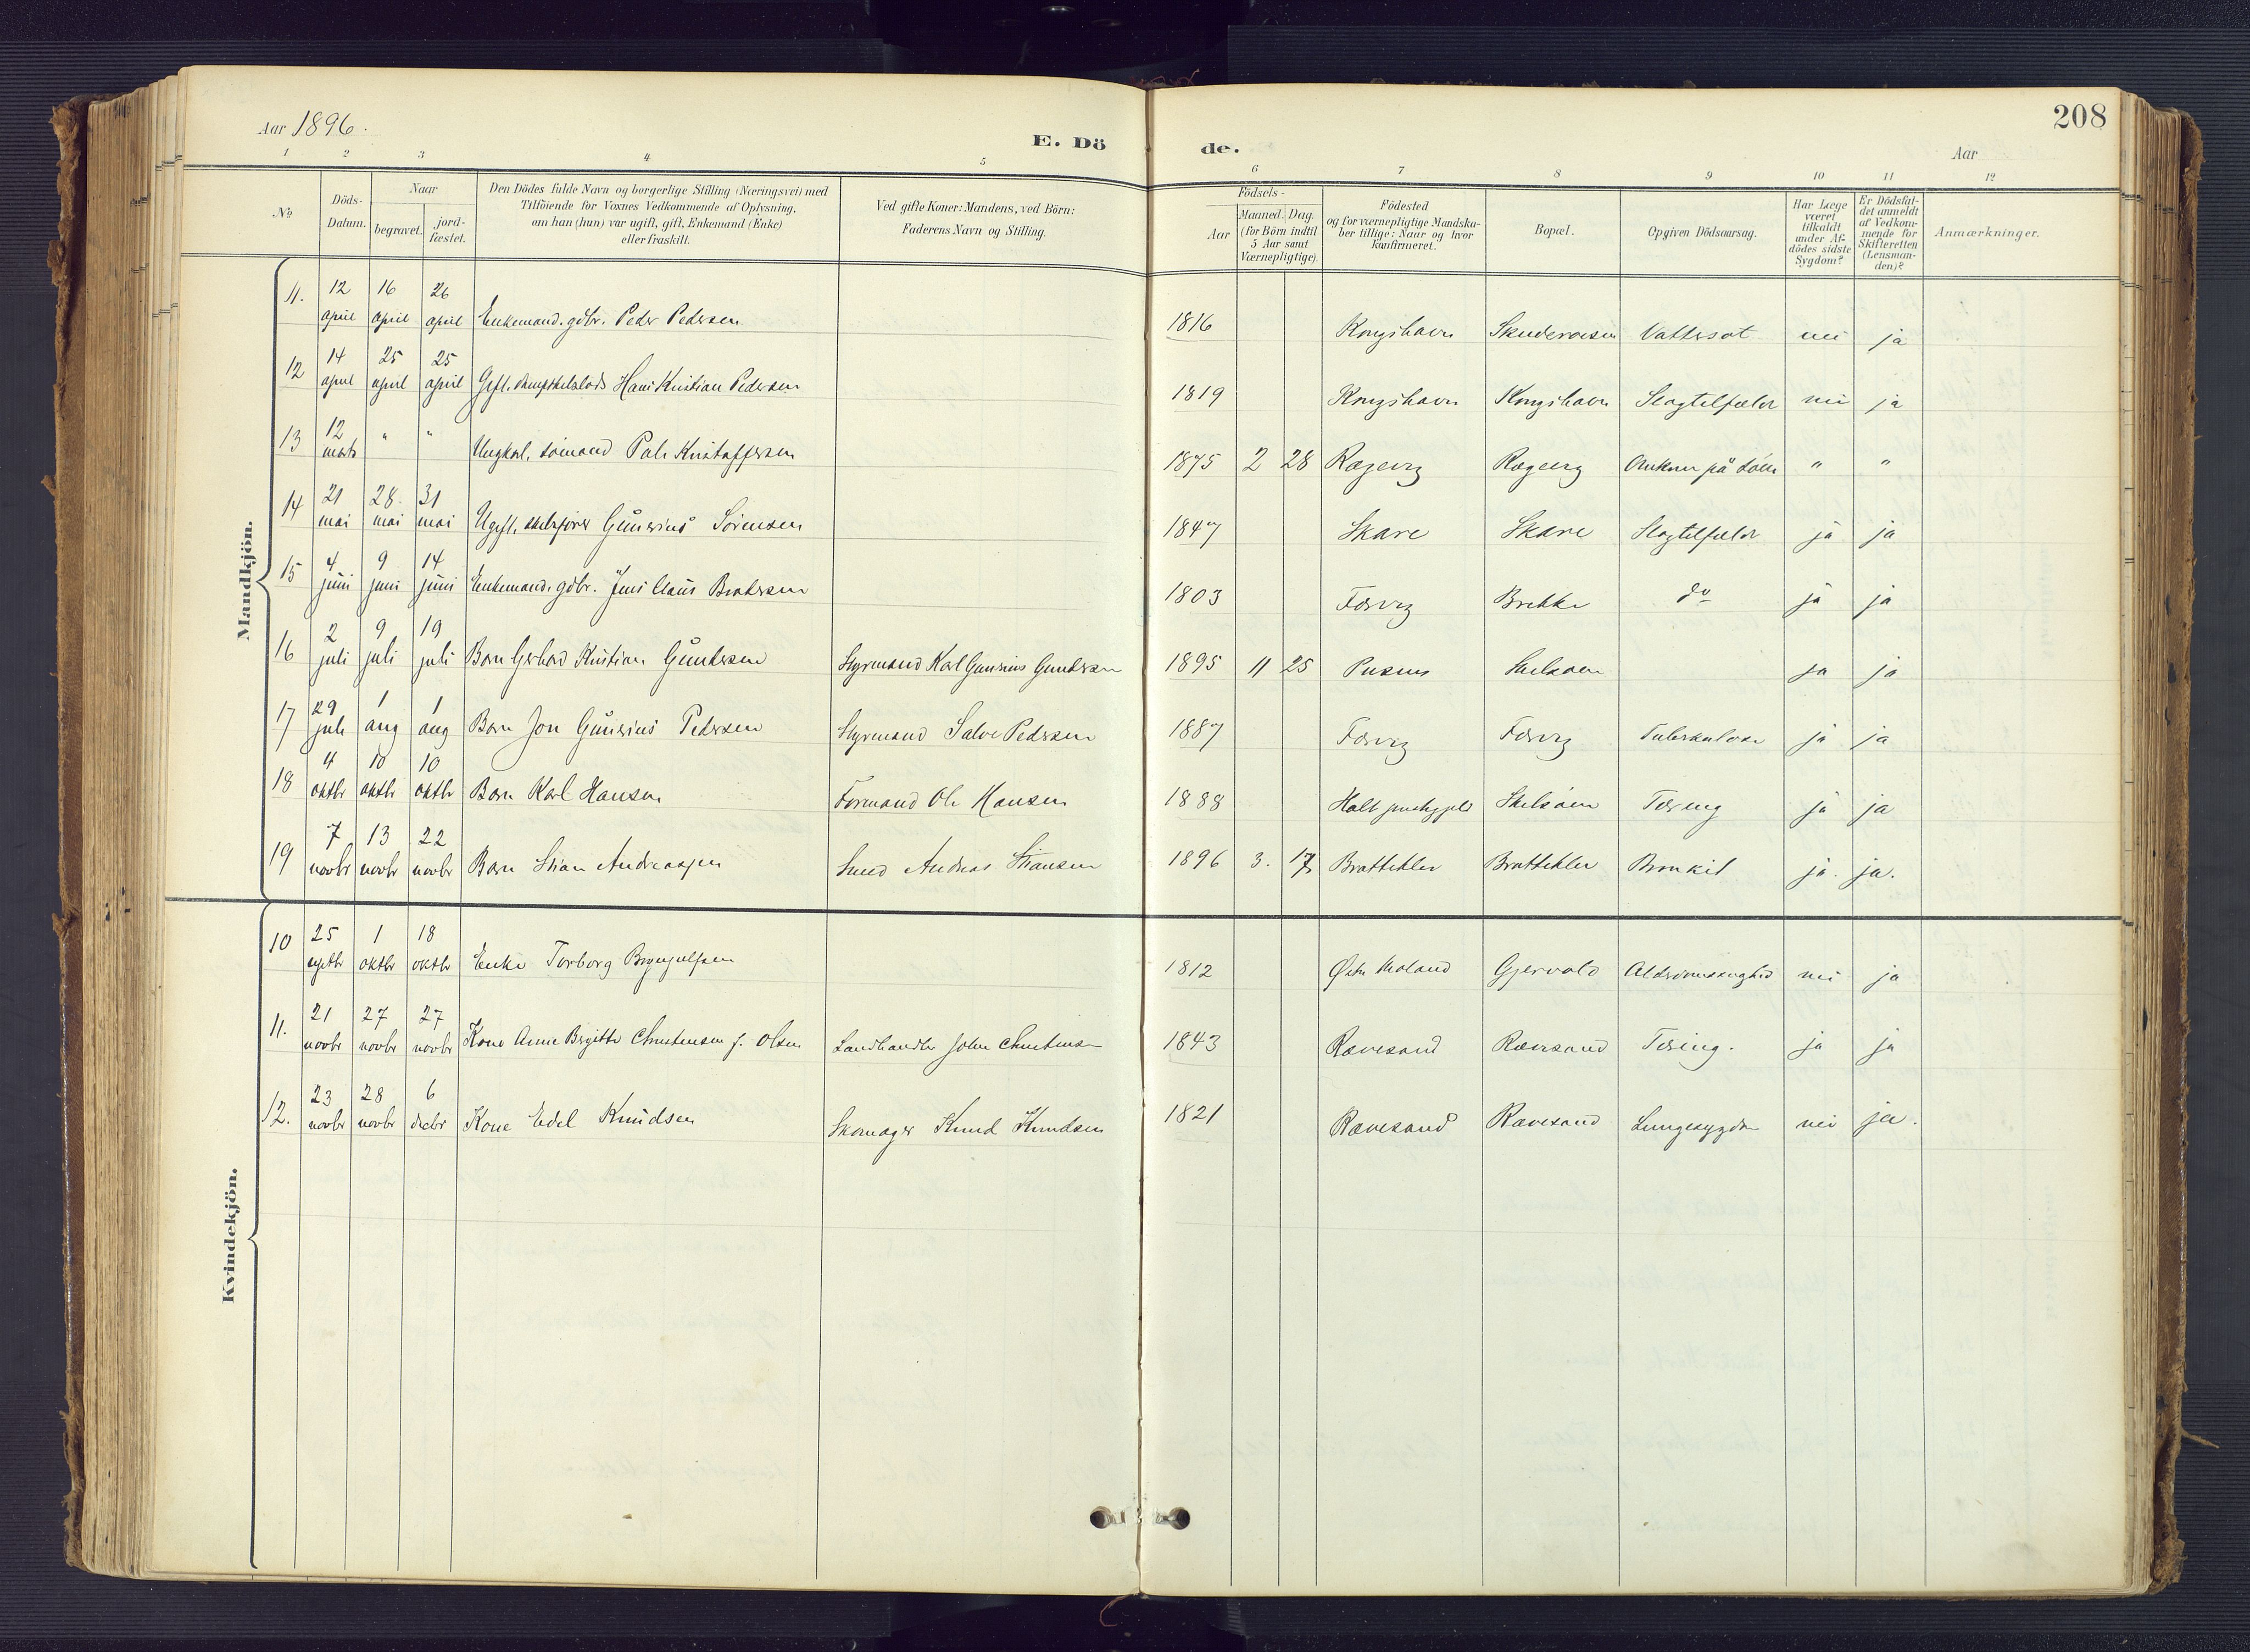 208
Aar 1896.
E. Dö de.
Aar
1 2 3 4 5 6 7 8 9 10 11 12
No
Döds-Datum.
Naar
begravet.
jord-fæstet.
Den Dödes fulde Navn og borgerlige Stilling (Næringsvei) med
Tilföiende for Voxnes Vedkommende af Oplysning,
om han (hun) var ugift, gift, Enkemand (Enke)
eller fraskilt.
Ved gifte Koner: Mandens, ved Börn:
Faderens Navn og Stilling.
Födsels-
Aar
Maaned. Dag.
(for Börn indtil
5 Aar samt
Værnepligtige).
Födested
og for værnepligtige Mandska-
ber tillige: Naar og hvor
konfirmeret.
Bopæl.
Opgiven Dödsaarsag.
Har Læge
været
tilkaldt
under Af-
dödes sidste
Sygdom?
Er Dödsfal-
det anmeldt
af Vedkom-
mende for
Skifteretten
(Lensman-
den)?
Anmærkninger.
Mandkjön.
11. 12 april 16 april 26 april Enkemand. gdbr. Peder Pedersen 1816 Kongshavn Vattersot nei ja
12 14 april 25 april 25 april Gift. Hans Kristian Pedersen 1819 Kongshavn Kongshavn Slagtilfælde nei ja
13 12 marts " " Ungkarl, sømand Kristoffersen 1875 2 28 Rægevig Rægevig " "
14 21 mai 28 mai 31 mai Ugift. Gunerius Sörensen 1847 Skare Skare Slagtilfælde ja ja
15 4 juni 9 juni 14 juni Enkemand. gdbr. Jens Claus 1803 Færvig Brekke do ja ja
16 2 juli 9 juli 19 juli Barn Gerhard Kristian Gundersen Styrmand Karl Gunerius Gundersen 1895 11 25 Pusnes Skilsøen ja ja
17 29 juli 1 aug 1 aug Barn Jon Gunerius Pedersen Styrmand Salve Pedersen 1887 Færvig Færvig Tuberkulose ja ja
18 4 oktbr 10 oktbr 10 oktbr Barn Karl Hansen Formand Ole Hansen 1888 Holt Skilsøen Tæring ja ja
19 7 novbr 13 novbr 22 novbr Barn Stian Andreassen Smed Andreas Stiansen 1896 3. 17 Brattekler Brattekler Bronkit ja. ja.
Kvindekjön.
10 25 septbr 1 oktbr 18 oktbr Enke Torborg Brynjulfsen 1812 Østre Moland Gjervold Alderdomssvaghed nei ja
11. 21 novbr 27 novbr 27 novbr Kone Anne Birgitte Christensen f. Olsen Landhandler John Christensen 1843 Rævesand Rævesand Tæring. ja ja
12. 23 novbr 28 novbr 6 decbr Kone Edel Knudsen Skomager Knud Knudsen 1821 Rævesand Rævesand Lungesygdom nei ja.